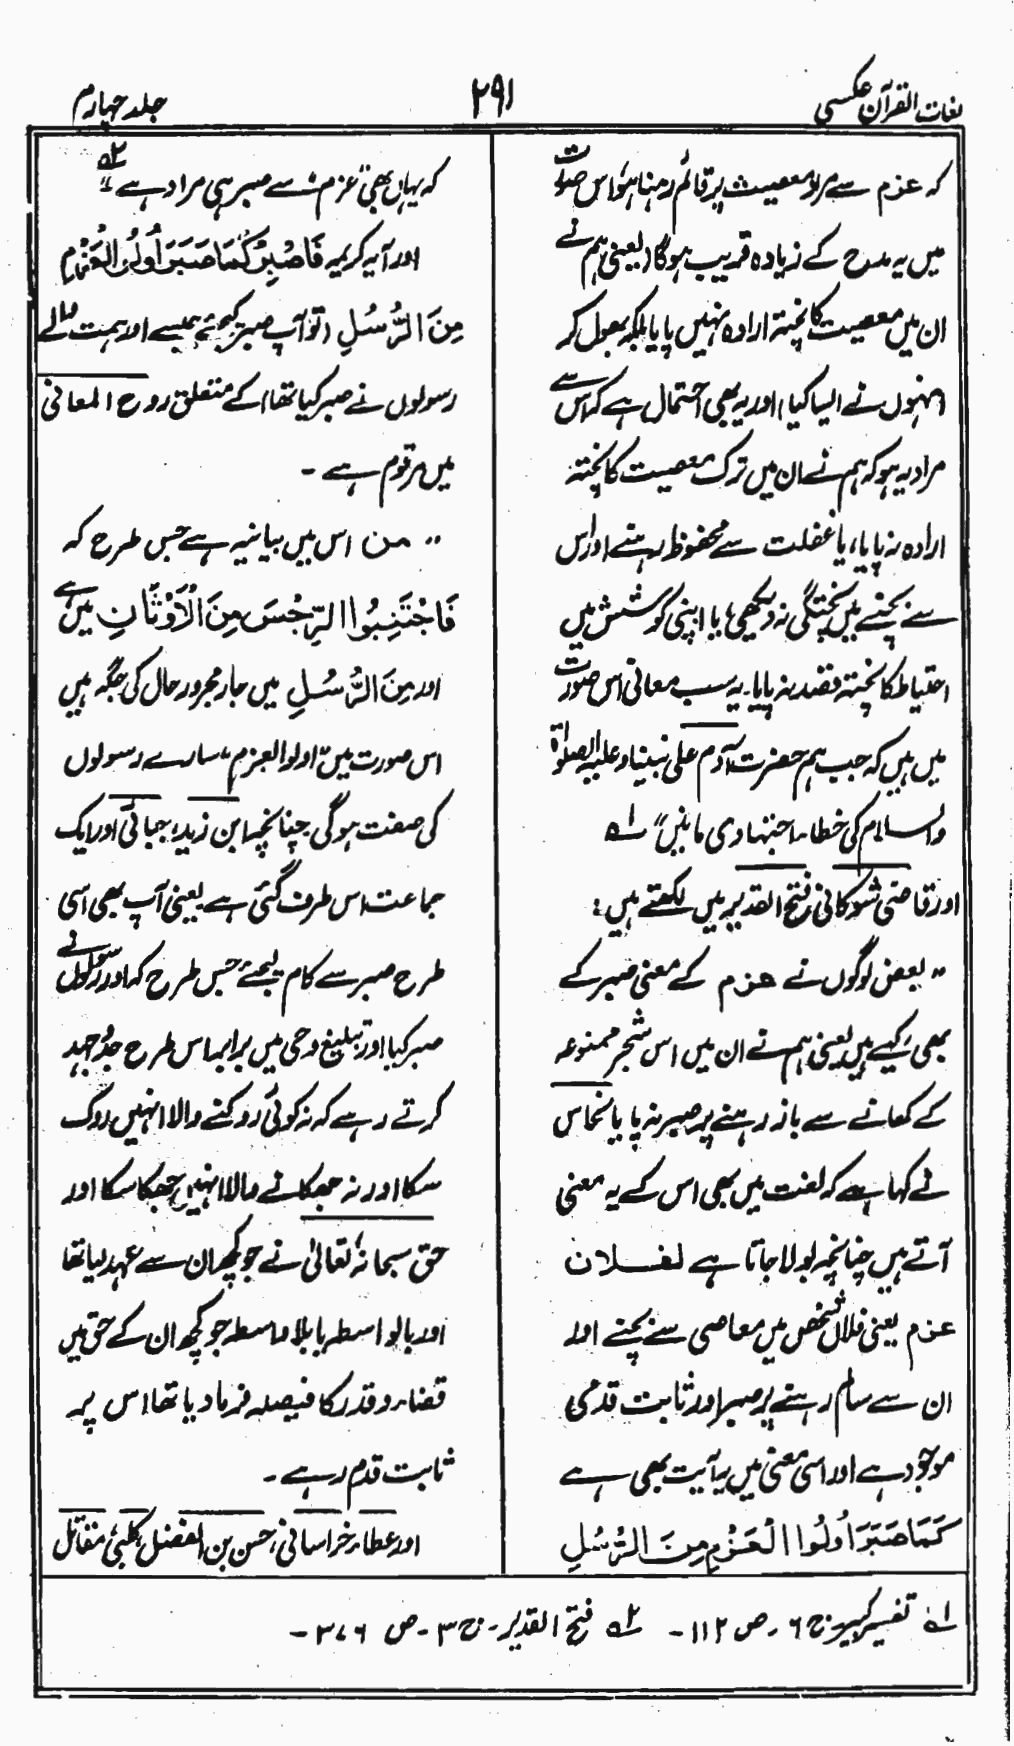 لغات القرآن عکسی
۲۹۱
جلد چہارم
کہ عزم سے مراد معصیت پر قائم رہنا ہو، اس صورت
میں یہ مدح کے زیادہ قریب ہوگا (یعنی ہم نے
ان میں معصیت کا پختہ ارادہ نہیں پایا بلکہ بھول کر
انہوں نے ایسا کیا) اور یہ بھی احتمال ہے کہ اس سے
مراد یہ ہو کہ ہم نے ان میں ترک معصیت کا پختہ
ارادہ نہ پایا، یا غفلت سے محفوظ رہنے اور اس
سے بچنے میں پختگی نہ دیکھی، یا اپنی کوشش میں
احتیاط کا پختہ قصد نہ پایا۔ یہ سب معانی اس صورت
میں ہیں کہ جب ہم حضرت آدم علی نبینا وعلیہ الصلوٰۃ
والسلام کی خطاء اجتہادی مانیں" لہ
اور قاضی شوکانی فتح القدیر میں لکھتے ہیں:
"بعض لوگوں نے عزم کے معنی صبر کے
بھی کہے ہیں یعنی ہم نے ان میں اس شجر ممنوعہ
کے کھانے سے باز رہنے پر صبر نہ پایا نحاس
نے کہا ہے کہ لغت میں بھی اس کے یہ معنی
آتے ہیں چنانچہ بولا جاتا ہے لفلان
عزم یعنی فلاں شخص میں معاصی سے بچنے اور
ان سے سالم رہنے پر صبر اور ثابت قدمی
موجود ہے اور اسی معنی میں یہ آیت بھی ہے
كَمَا صَبَرَ اُولُوا الْعَزْمِ مِنَ الرُّسُلِ
کہ یہاں بھی "عزم" سے صبر ہی مراد ہے" ۲ہ
اور آیہ کریمہ فَاصْبِرْ كَمَا صَبَرَ اُولُو الْعَزْمِ
مِنَ الرُّسُلِ (تو آپ صبر کیجئے جیسے اور ہمت والے
رسولوں نے صبر کیا تھا) کے متعلق روح المعانی
میں مرقوم ہے -
"من اس میں بیانیہ ہے جس طرح کہ
فَاجْتَنِبُوا الرِّجْسَ مِنَ الْاَوْثَانِ میں ہے
اور مِنَ الرُّسُلِ میں جار مجرور حال کی جگہ ہیں
اس صورت میں "اولوالعزم" سارے رسولوں
کی صفت ہوگی چنانچہ ابن زید، جبائی اور ایک
جماعت اس طرف گئی ہے یعنی آپ بھی اسی
طرح صبر سے کام لیجئے جس طرح کہ اور رسولوں نے
صبر کیا اور تبلیغ وحی میں برابر اس طرح جدوجہد
کرتے رہے کہ نہ کوئی روکنے والا انہیں روک
سکا اور نہ جھکانے والا انہیں جھکا سکا اور
حق سبحانہٗ تعالیٰ نے جو کچھ ان سے عہد لیا تھا
اور بالواسطہ یا بلا واسطہ جو کچھ ان کے حق میں
قضاء و قدر کا فیصلہ فرما دیا تھا اس پر
ثابت قدم رہے -
اور عطاء خراسانی، حسن بن الفضل، کلبی، مقاتل
لہ تفسیر کبیر۔ ج ۶ - ص ۱۱۲ - ۲ہ فتح القدیر - ج ۳ - ص ۳۷۶ -